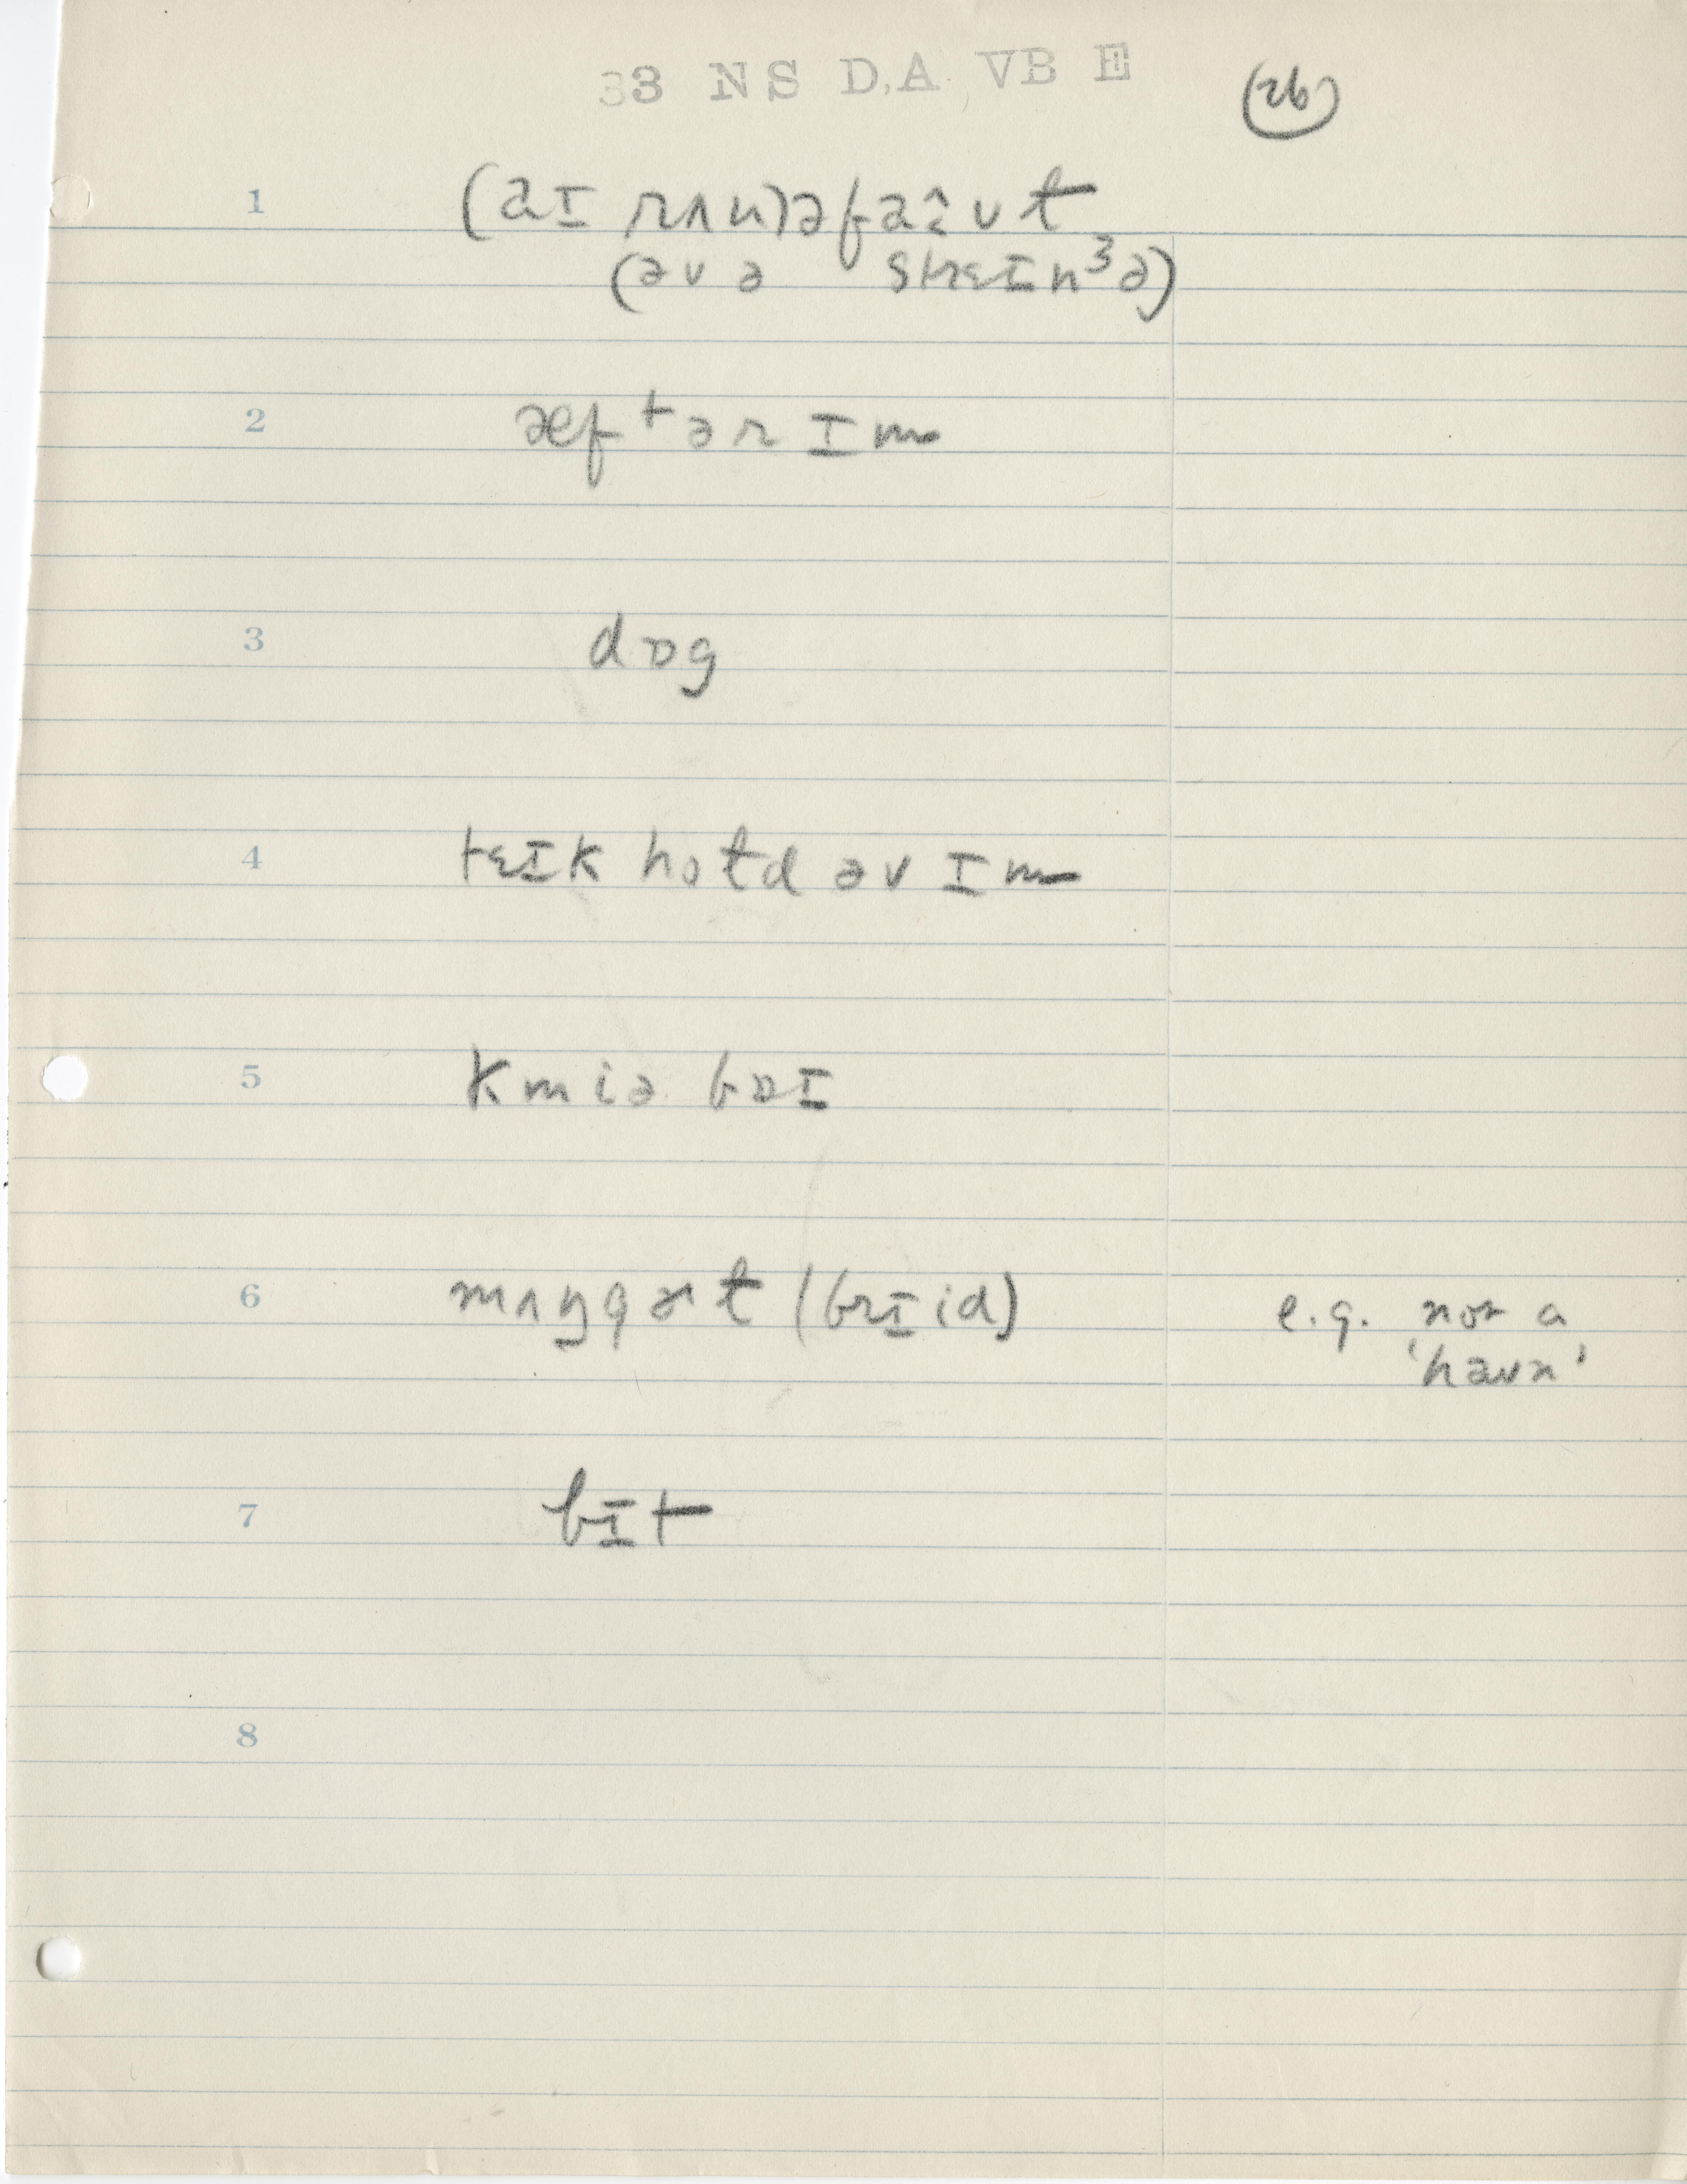 33 NS D.A. VB E
(26)
1 (aɪ rʌn) əfaːʊt
(əv ə streɪnʒə)
2 æftər ɪm
3 dɒg
4 tɛɪk hold əv ɪm
5 kmiə bɒɪ
6 mʌŋgɚt (brɪid) e.g. not a
'haun'
7 bɪt
8